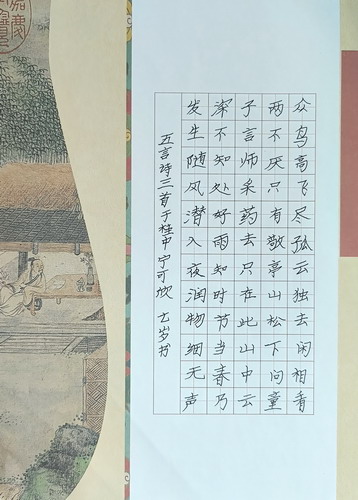 众鸟高飞尽孤云独去闲相看
两不厌只有敬亭山松下问童
子言师采药去只在此山中云
深不知处好雨知时节当春乃
发生随风潜入夜润物细无声
五言诗三首于桂中 宁可欣 七岁书